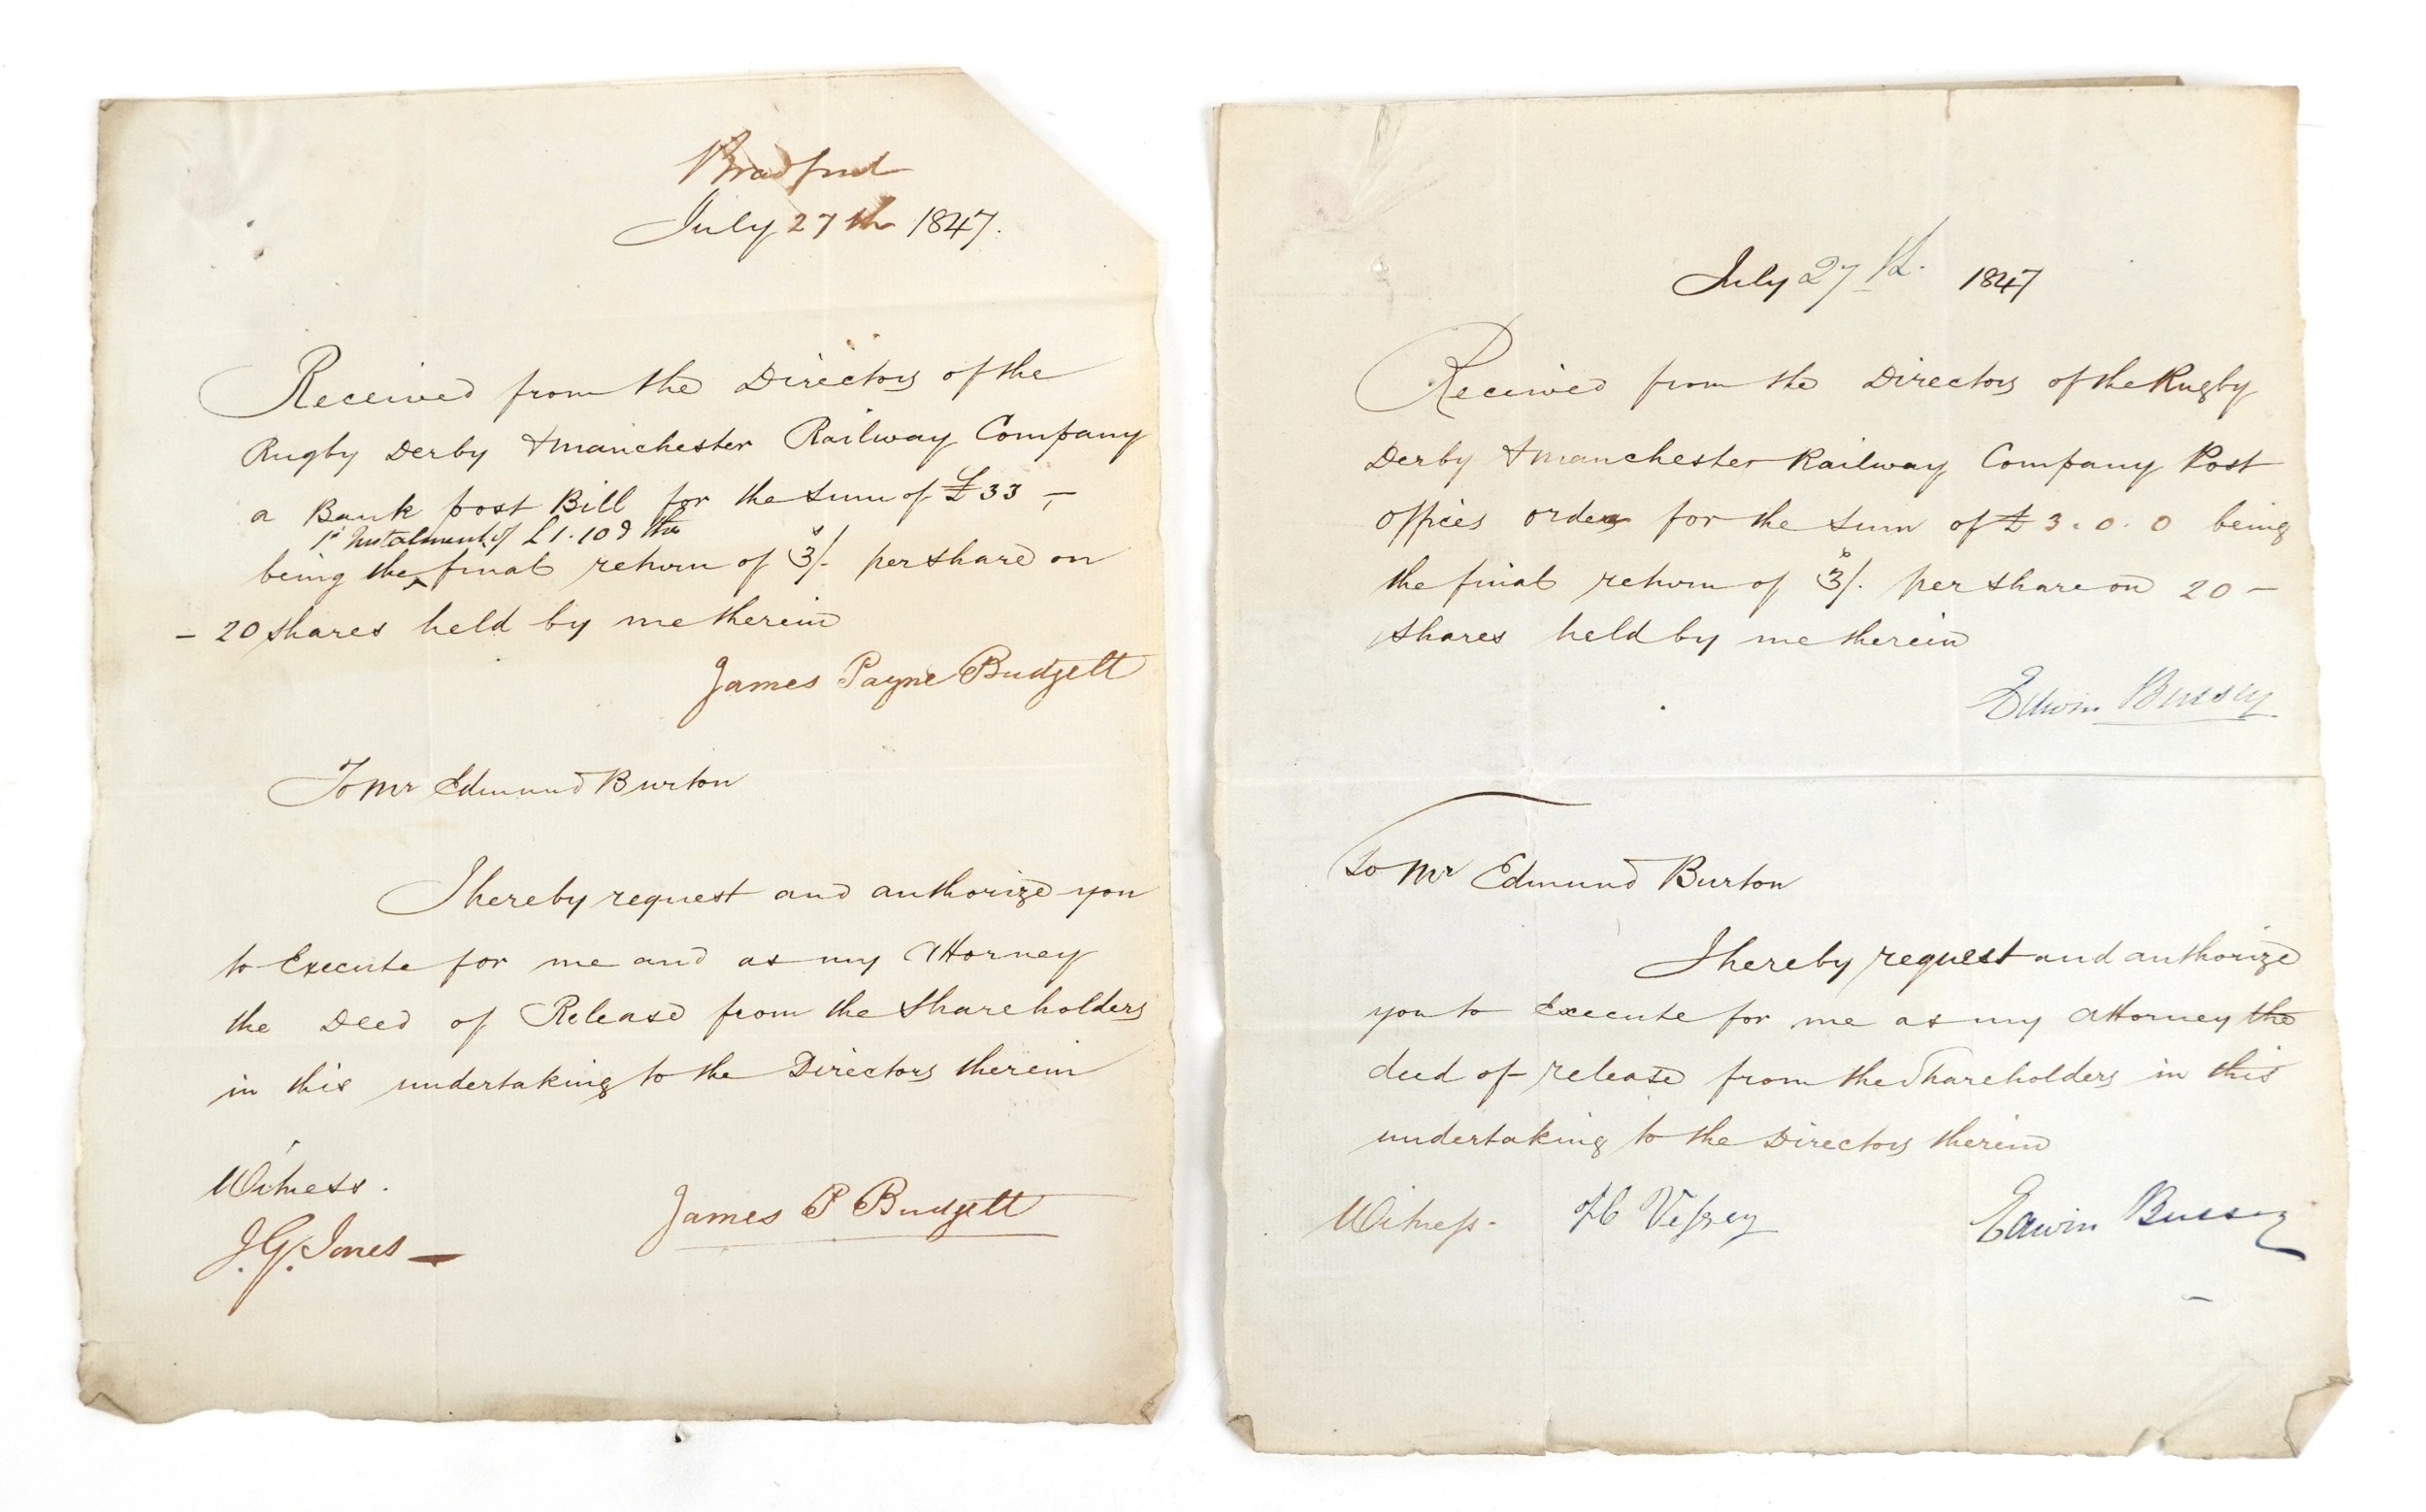 Bradford
July 27th 1847.
Received from the Directors of the
Rugby Derby & Manchester Railway Company
a Bank post Bill for the Sum of £33 –
1st Instalment of £1.10 & the
being the ^ final return of 3s/- per share on
– 20 shares held by me therein
James Payne Budgett
To Mr Edmund Burton
I hereby request and authorize you
to Execute for me and as my Attorney
the Deed of Release from the Shareholders
in this undertaking to the Directors therein
Witness.
J. G. Jones –
James P Budgett
July 27th 1847
Received from the Directors of the Rugby
Derby & Manchester Railway Company Post
offices order for the Sum of £3.0.0 being
the final return of 3s/- per share on 20 –
shares held by me therein
Edwin Bussey
To Mr Edmund Burton
I hereby request and authorize
you to Execute for me as my attorney the
deed of release from the Shareholders in this
undertaking to the Directors therein
Witness - Vessey
Edwin Bussey